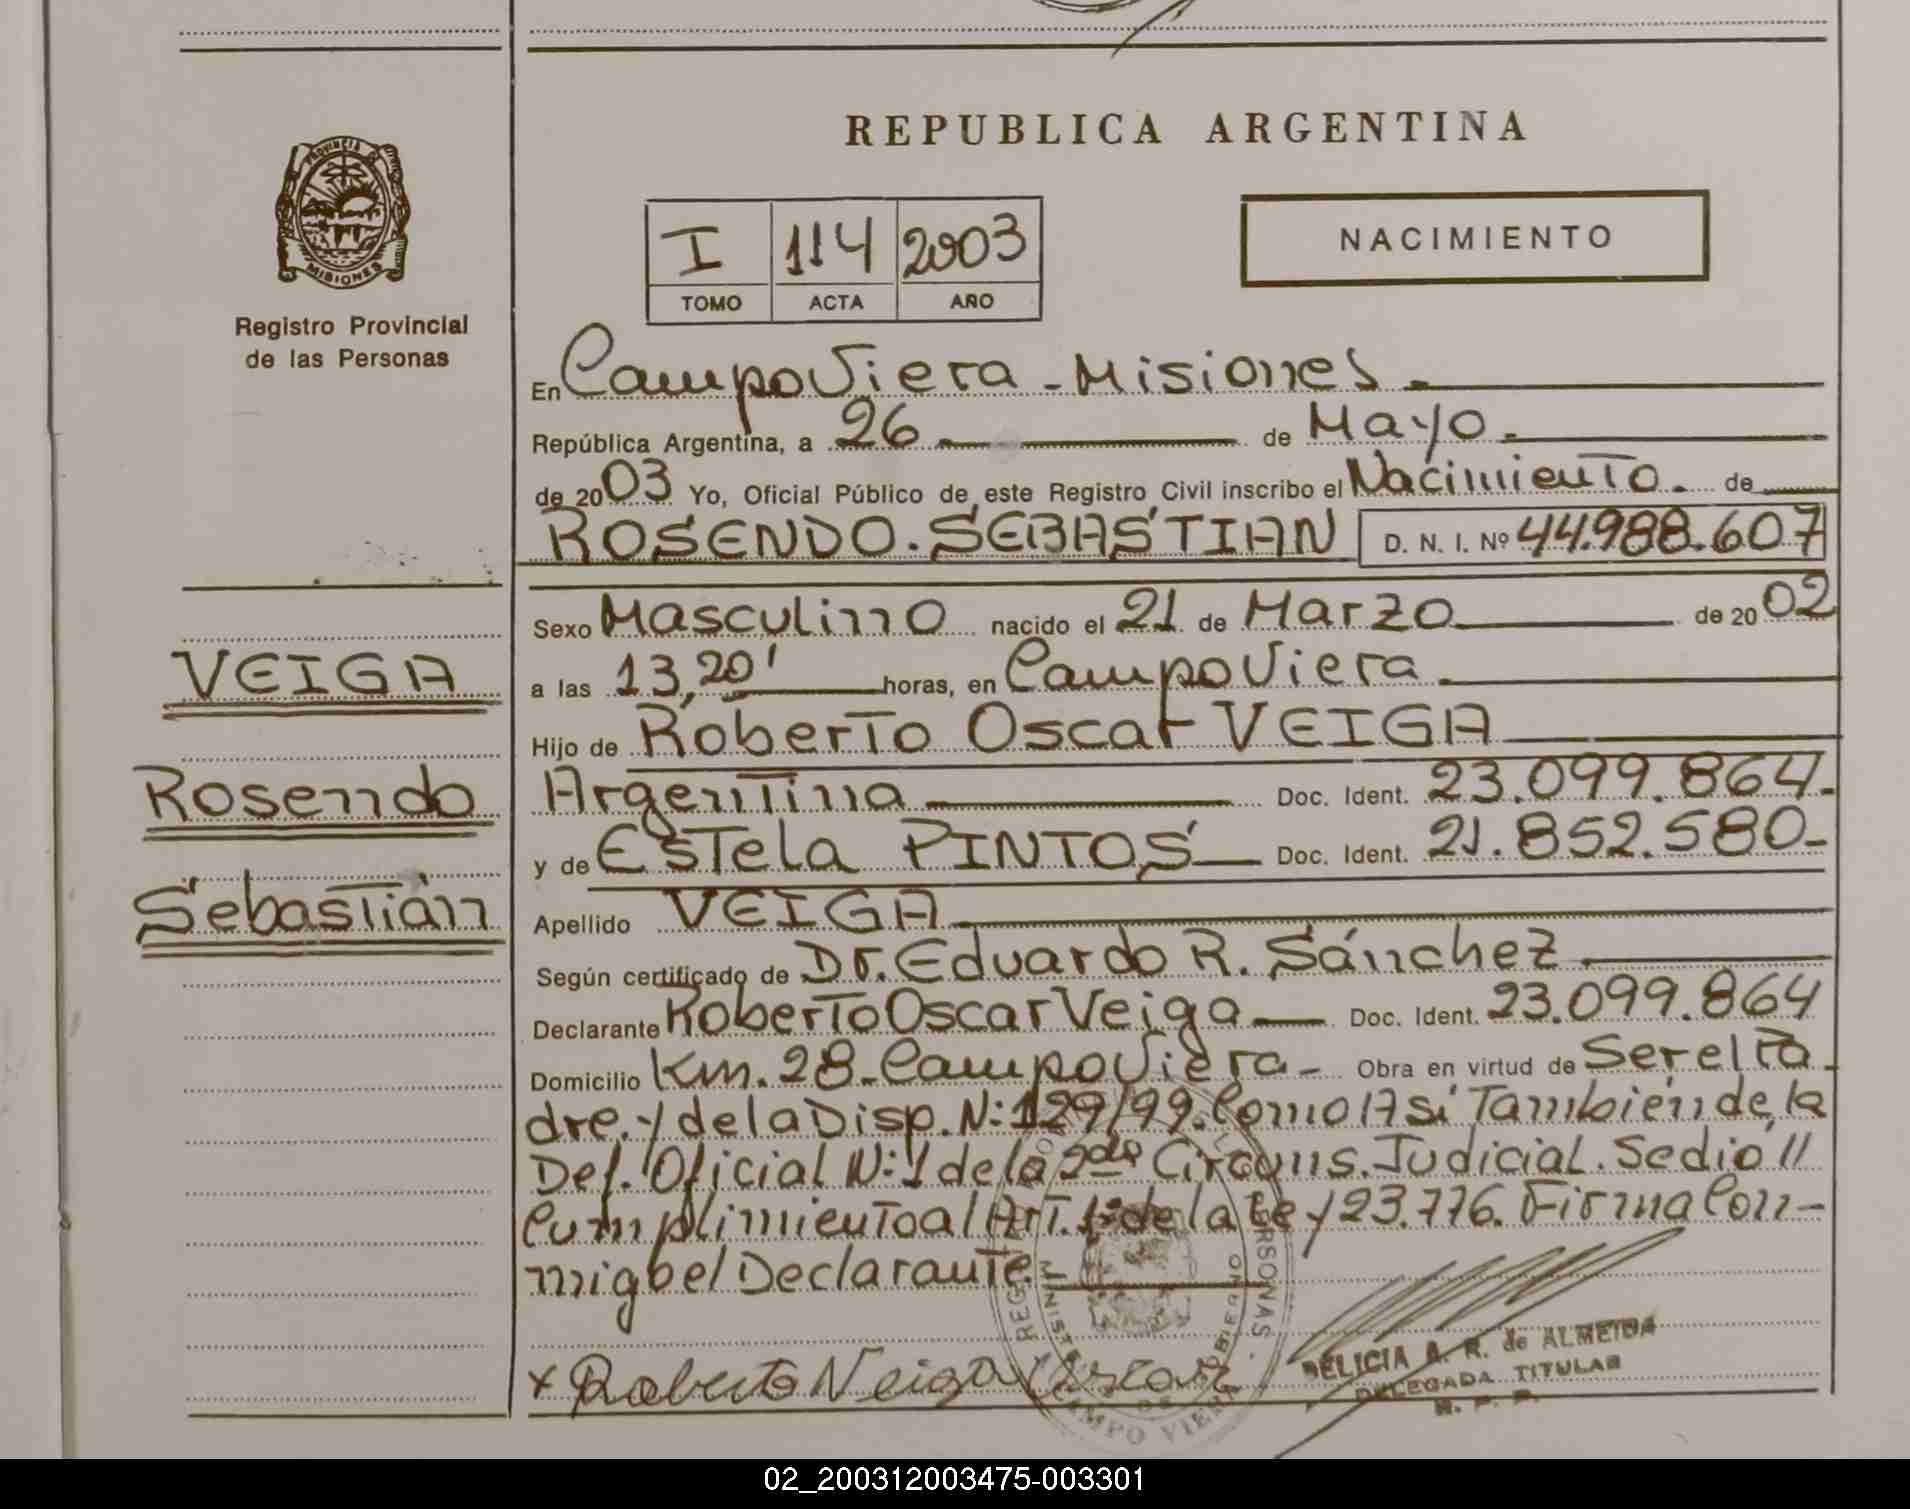 REPUBLICA ARGENTINA
PROVINCIA DE
MISIONES
Registro Provincial
de las Personas
I 114 2003
TOMO ACTA AÑO
NACIMIENTO
En CampoViera - Misiones.
República Argentina, a 26 de Mayo.
de 2003 Yo, Oficial Público de este Registro Civil inscribo el Nacimiento. de
ROSENDO. SEBASTIAN D. N. I. Nº 44.988.607
Sexo Masculino nacido el 21 de Marzo de 2002
a las 13,20' horas, en CampoViera.
Hijo de Roberto Oscar VEIGA
Argentina Doc. Ident. 23.099.864.
y de Estela PINTOS Doc. Ident. 21.852.580-
Apellido VEIGA
Según certificado de Dr. Eduardo R. Sánchez.
Declarante Roberto Oscar Veiga Doc. Ident. 23.099.864
Domicilio Km. 28. CampoViera- Obra en virtud de Ser el Pa
dre. y de la Disp. N: 129/99. Como Así También de la
Def. Oficial N: 1 de la 2da Circuns. Judicial. Se dió
Cumplimiento al Art. 1º de la Ley 23.776. Firma Con-
migo el Declarante.
VEIGA
Rosendo
Sebastián
x Roberto Veiga Oscar
DELICIA A. R. de ALMEIDA
DELEGADA TITULAR
R. P. P.
CAMPO VIERA
02_200312003475-003301